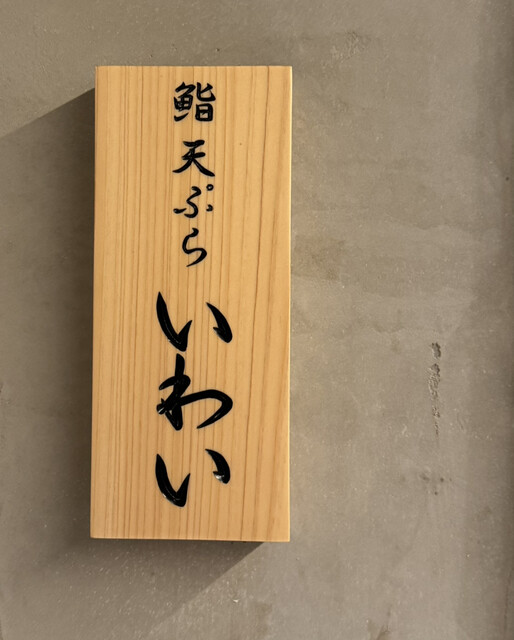 鮨 天ぷら いわい